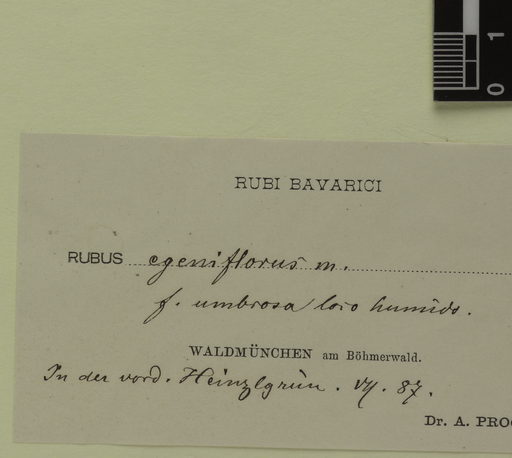 0 1
RUBI BAVARICI
RUBUS egeniflorus m.
f. umbrosa loco humido.
WALDMÜNCHEN am Böhmerwald.
In der vord. Heinzlgrün. VII. 87.
Dr. A. PROG